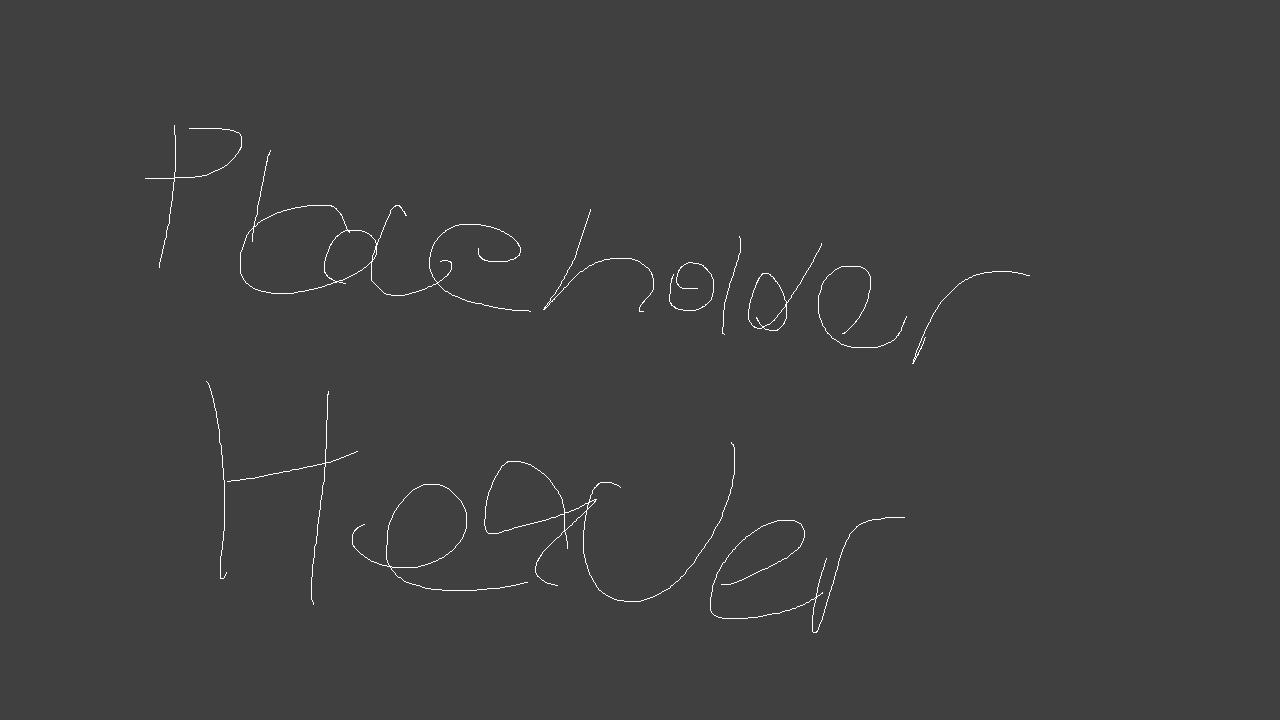 Placeholder
Header